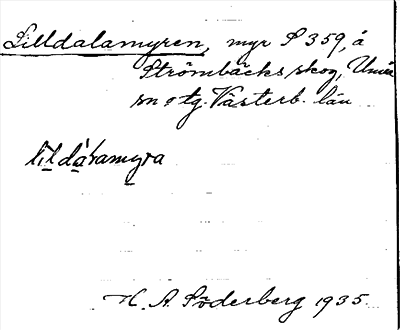 Lilldalamyren, myr S 359, å
Strömbäcks skog, Umeå
sn o tg. Västerb. län
H. A. Söderberg 1935.